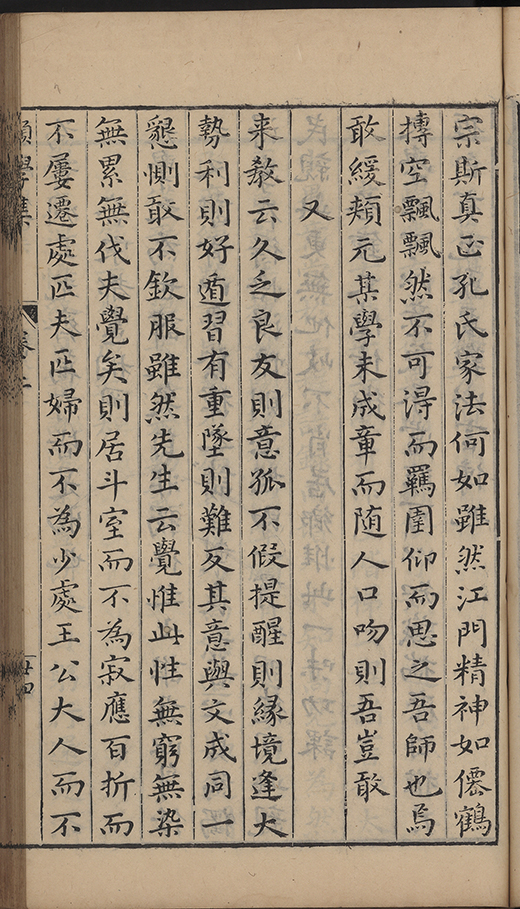 宗斯真正孔氏家法何如雖然江門精神如僊鶴
摶空飄飄然不可淂而羈圉仰而思之吾師也焉
敢緩頰元某學未成章而随人口吻則吾豈敢
又
来敎云久乏良友則意孤不假提醒則緣境逢大
勢利則好遁習有重墜則難反其意與文成同一
懇惻敢不欽服雖然先生云覺惟此性無窮無染
無累無伐夫覺矣則居斗室而不為寂應百折而
不屢遷處匹夫匹婦而不為少處王公大人而不
學集
卷二
廿四